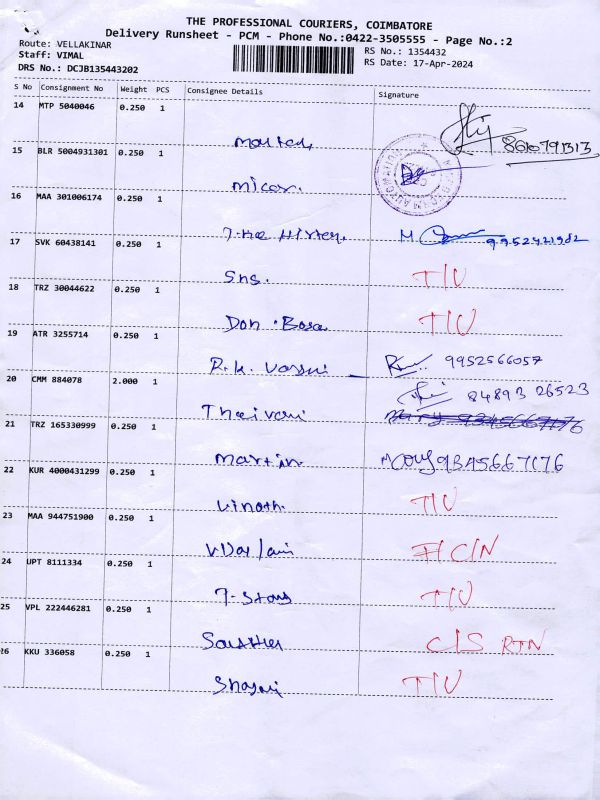 THE PROFESSIONAL COURIERS, COIMBATORE
Delivery Runsheet - PCM - Phone No.:0422-3505555 - Page No.:2
Route: VELLAKINAR
RS No.: 1354432
Staff: VIMAL
RS Date: 17-Apr-2024
DRS No.: DCJB135443202
S No Consignment No Weight PCS Consignee Details Signature
14 MTP 5040046 0.250 1
8610791313
15 BLR 5004931301 0.250 1
micas.
16 MAA 301006174 0.250 1
M 9952421982
17 SVK 60438141 0.250 1
Sns. T/U
18 TRZ 30044622 0.250 1
Don Bosco T/U
19 ATR 3255714 0.250 1
R.k. 9952566057
20 CMM 884078 2.000 1
84893 26523
Thaivani
21 TRZ 165330999 0.250 1
martin 9345667176
22 KUR 4000431299 0.250 1
vinoth. T/U
23 MAA 944751900 0.250 1
F/C/N
24 UPT 8111334 0.250 1
7-Stars T/U
25 VPL 222446281 0.250 1
C/S RTN
26 KKU 336058 0.250 1
T/U